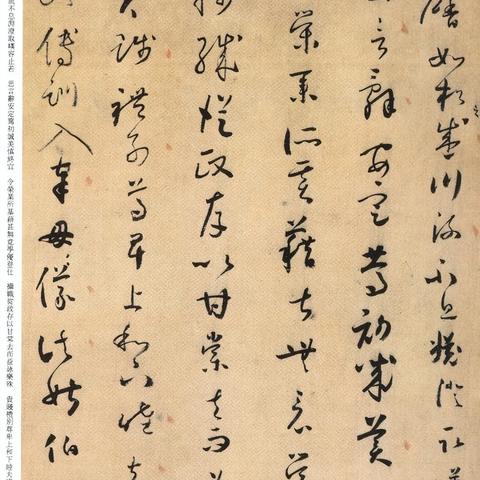 馨如松之盛川流不息淵澄取
言辭安定篤初誠美
榮業所基藉甚無竟學
職從政存以甘棠去而益
賤禮別尊卑上和下睦夫
傅訓入奉母儀諸姑伯
流不息淵澄取暎容止若 思言辭安定篤初誠美慎終宜 令榮業所基藉甚無竟學優登仕 攝職從政存以甘棠去而益詠樂殊 貴賤禮別尊卑上和下睦夫